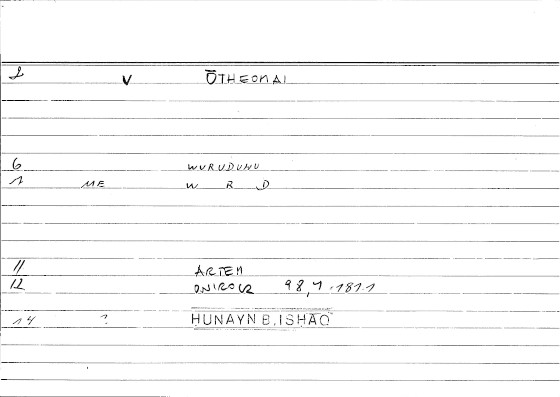 2 V ŌTHEOMAI
6 WURUDUNU
1 ME W R D
11 ARTEM
12 ONIROCR 98,7.1811
14 ? HUNAYN B. ISHĀQ